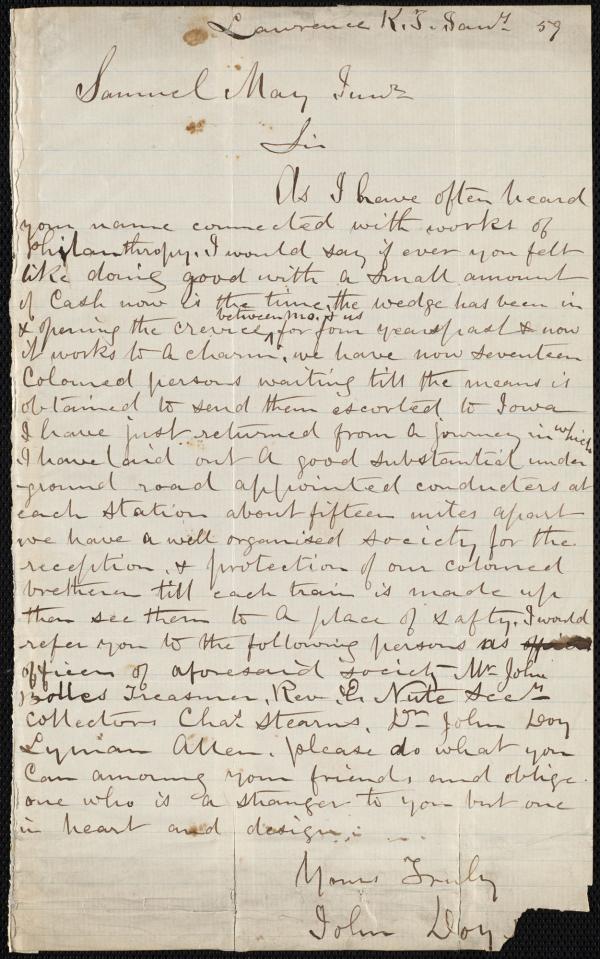 Lawrence K.T. Jany 59
Samuel May Junr
Sir
As I have often heard
your name connected with works of
Philanthropy, I would say if ever you felt
like doing good with a small amount
of Cash now is the time, the wedge has been in
between Mo. & us
& opening the crevice ^ for four years past & now
it works to a charm, we have now seventeen
Coloured persons waiting till the means is
obtained to send them escorted to Iowa
I have just returned from a journey in which
I have laid out a good substantial under
-ground road appointed conducters at
each station about fifteen miles apart
we have a well organised society for the
reception, & protection of our coloured
bretheren till each train is made up
then see them to a place of safty. I would
refer you to the following persons as
officers of aforesaid society Mr John
Bolles Treasurer, Rev E. Nute Secty
Collectors Chas Stearns, Dr John Doy
Lyman Allen. please do what you
Can amoung your friends and oblige
one who is a stranger to you but one
in heart and design.
Yours Truly
John Doy